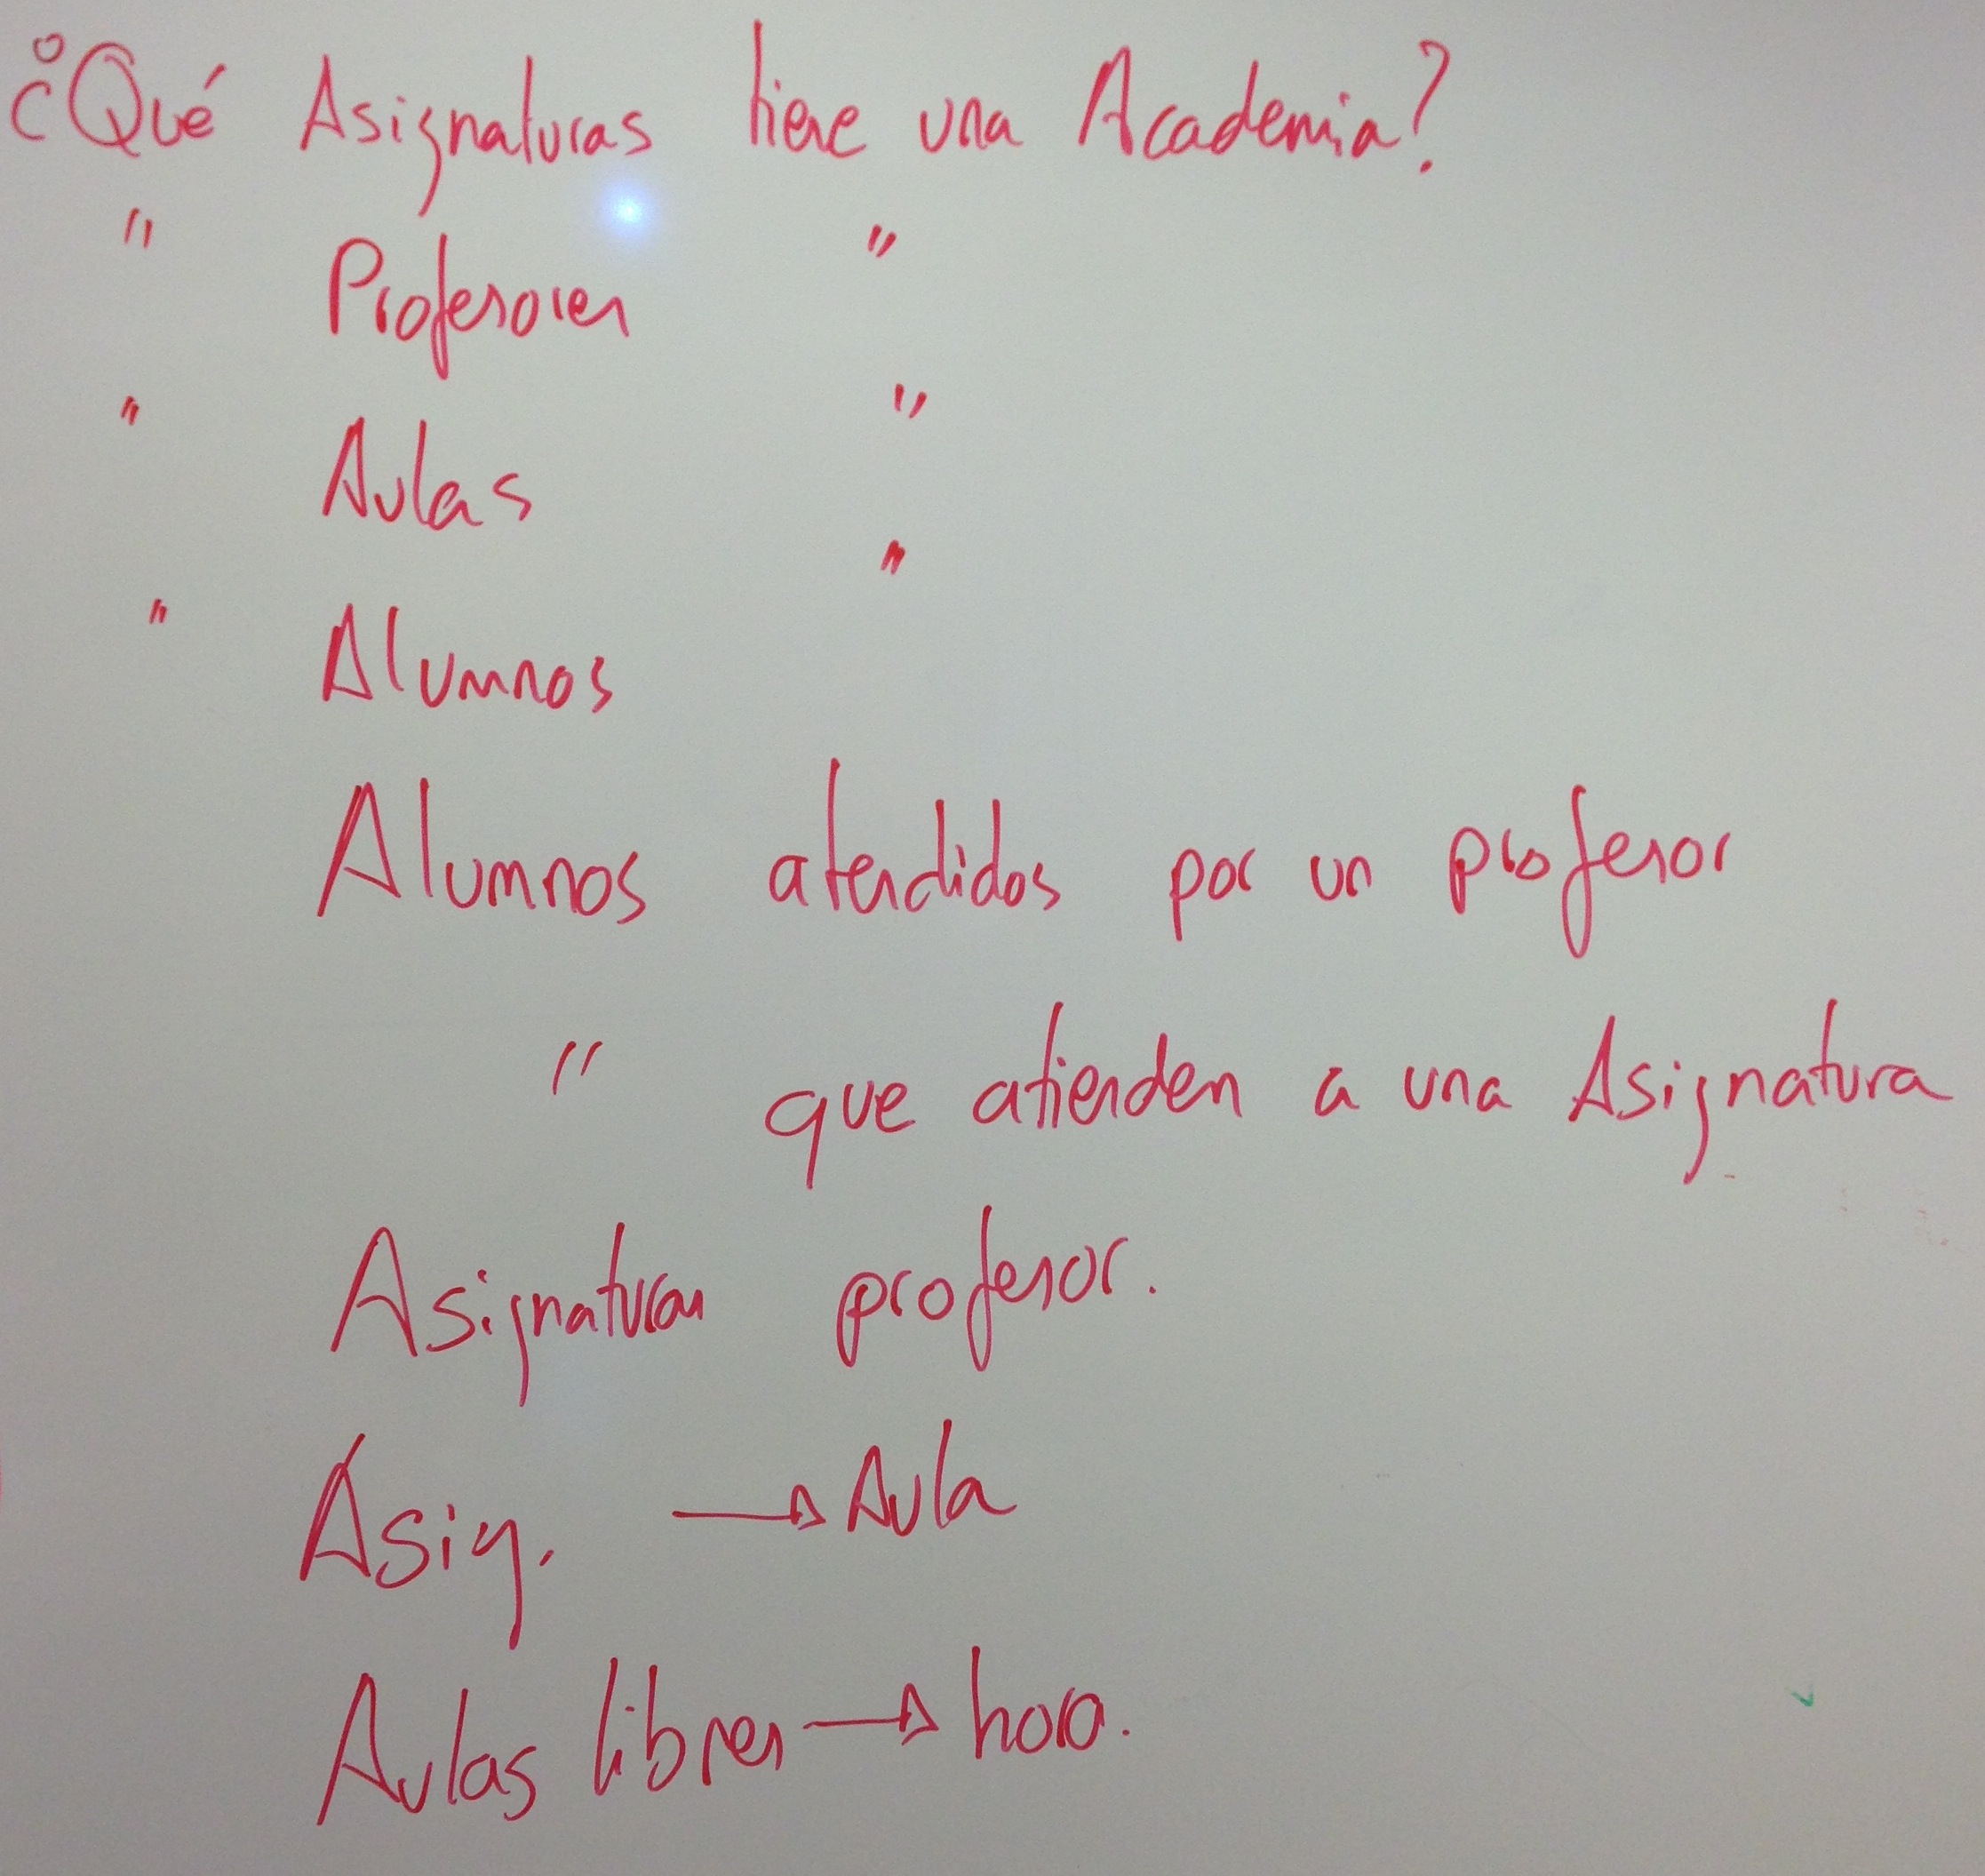 ¿Qué Asignaturas tiene una Academia?
" Profesores "
" Aulas "
" Alumnos "
Alumnos atendidos por un profesor
" que atienden a una Asignatura
Asignaturas profesor.
Asig. → Aula
Aulas libres → hora.